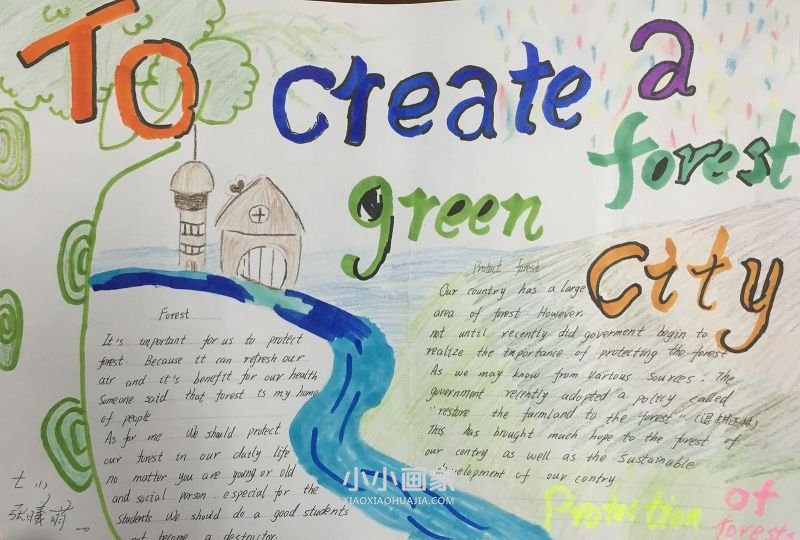 To create a
green forest
city
Forest
It's important for us to protect
forest. Because it can refresh our
air and it's benefit for our health
Someone said that forest is my home
of people
As for me We should protect
our forest in our daily life
no matter you are young or old
and social person. especial for the
students. We should do a good students
not become a destructor.
Protect forest
Our country has a large
area of forest However,
not until recently did goverment begin to
realize the importance of protecting the forest
As we may know from Various Sources. The
government recently adopted a policy called
"restore the farmland to the forest" (退耕还林)
This has brought much hope to the forest of
our contry as well as the Sustainable
development of our contry
Protection of
forests
七小
小小画家
XIAOXIAOHUAJIA.COM